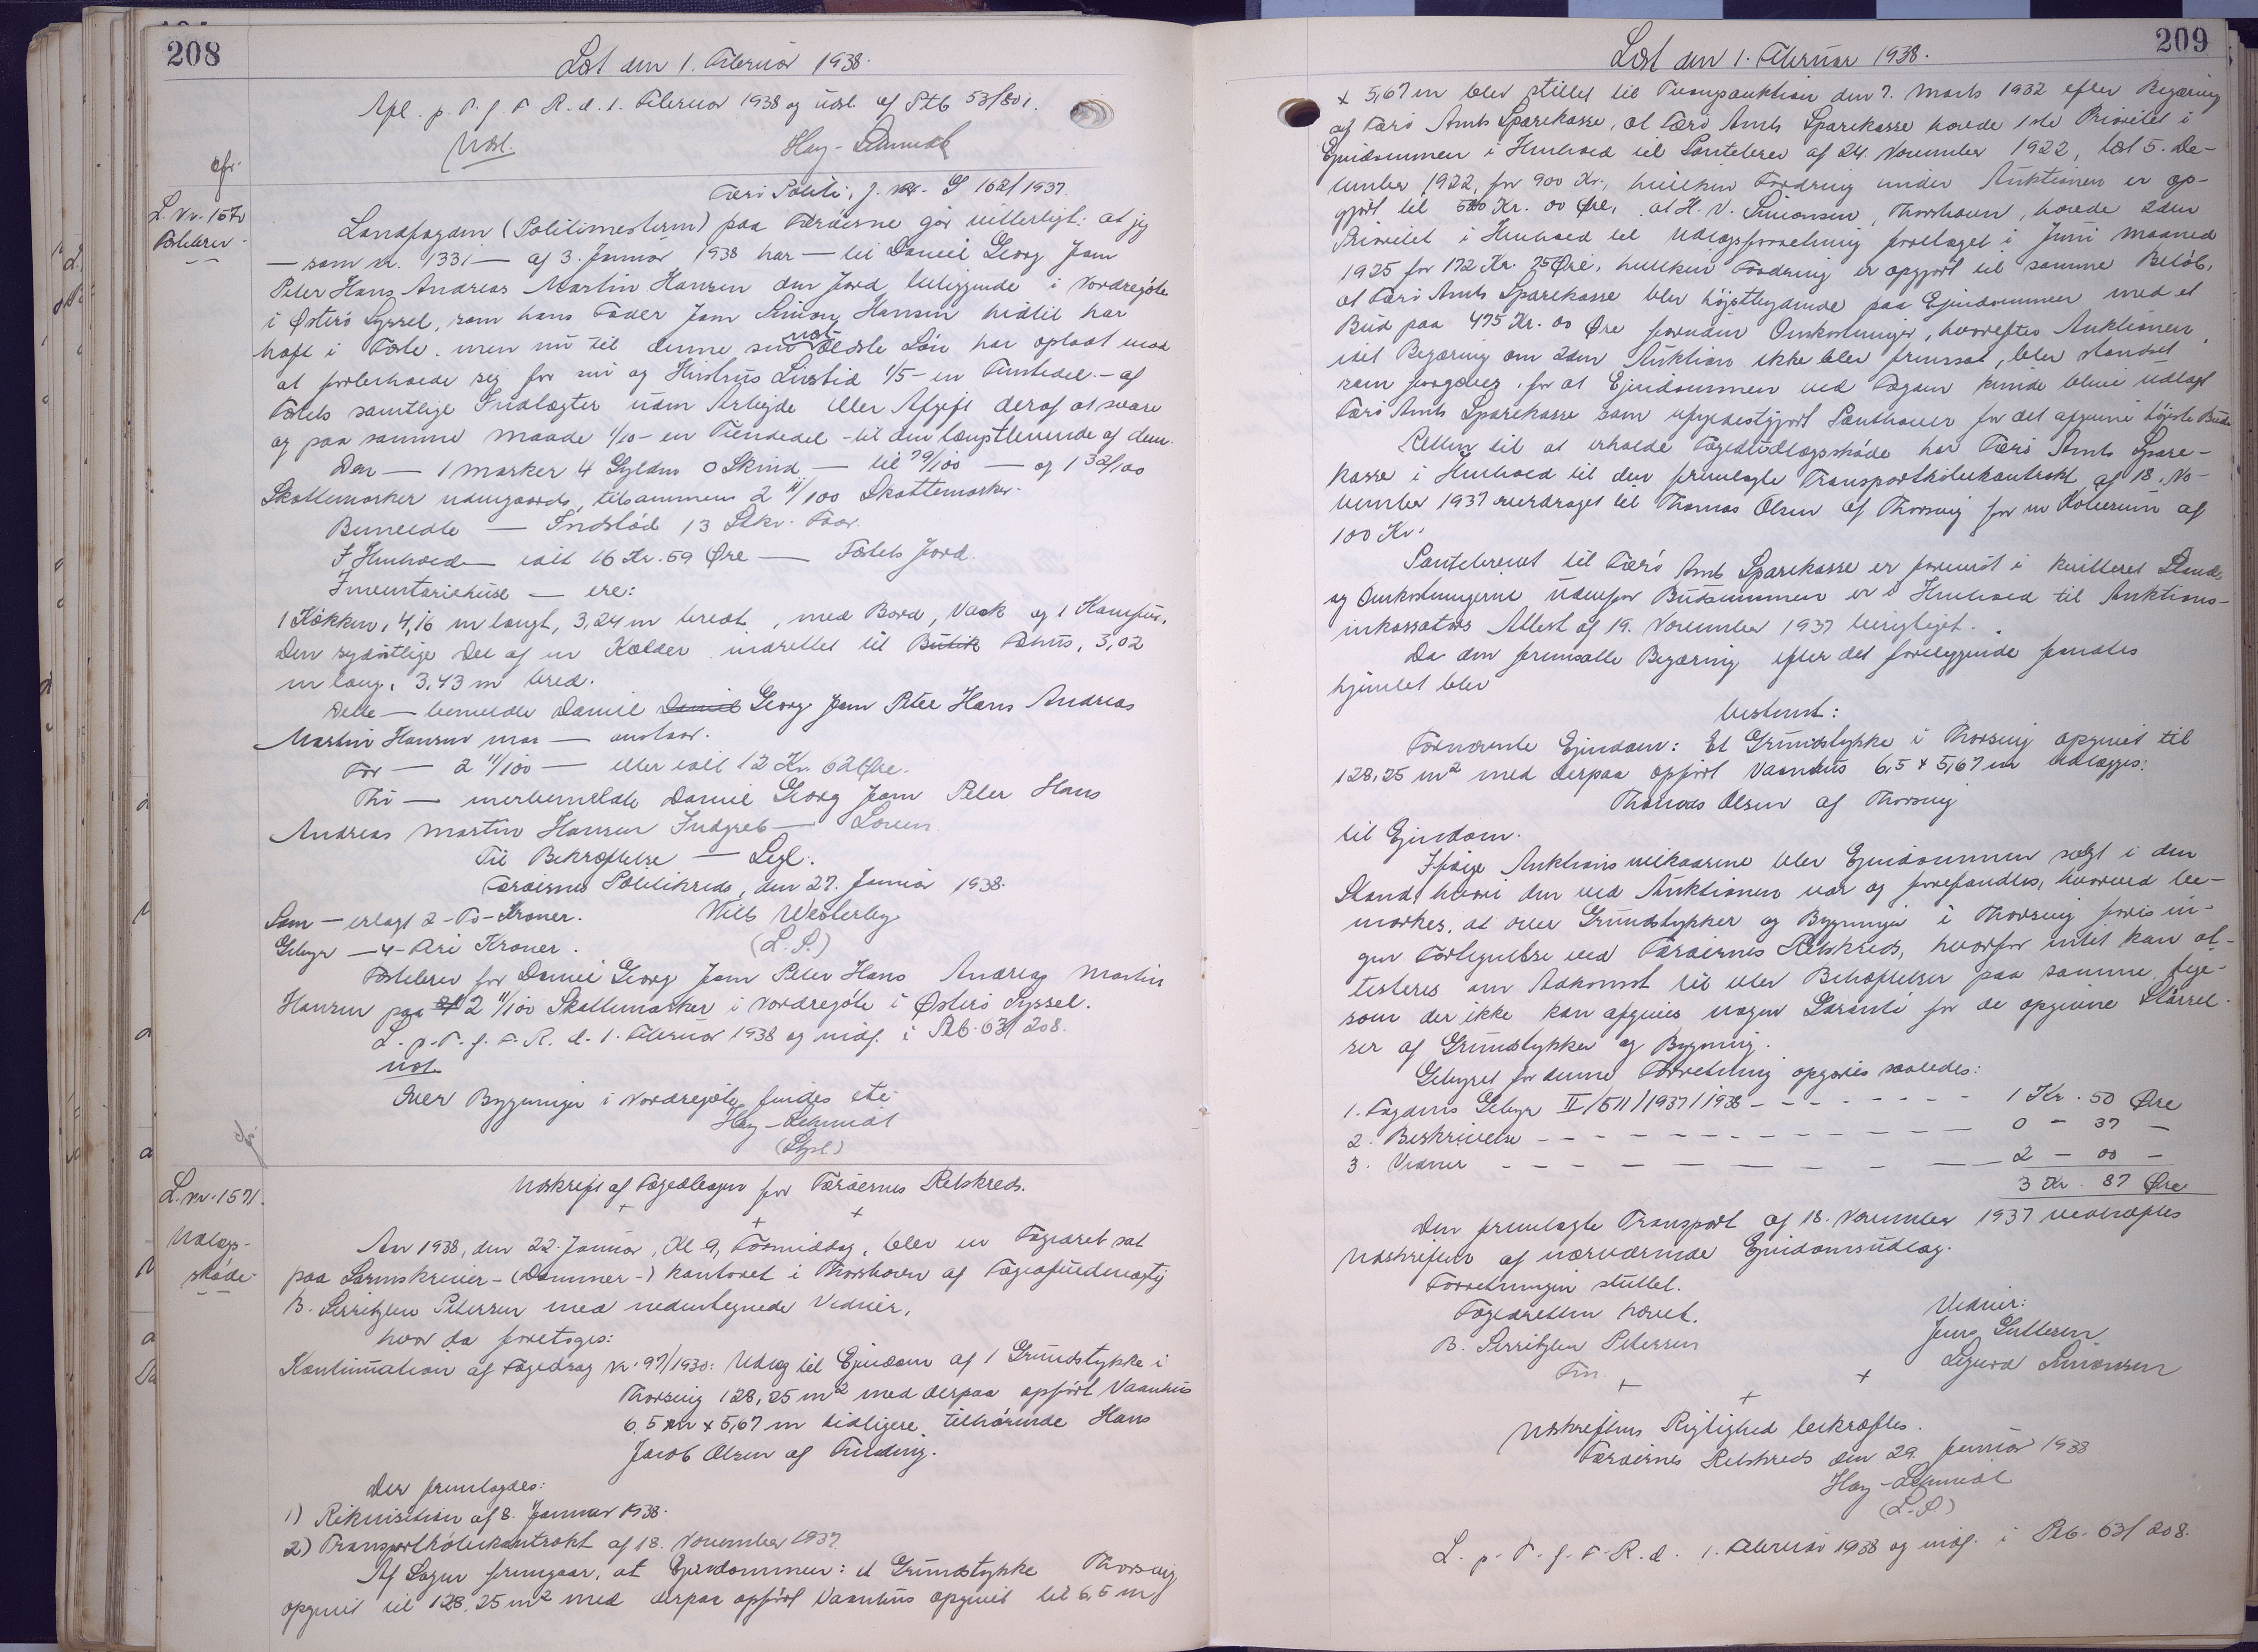 208
Læst den 1. Februar 1938.
Apl. p. T. f. F. R. d. 1. Februar 1938 og udsl. af Ptb 53/801.
Udsl. Hay-Schmidt
afs.
Færø Politi, J. nr. G 162/1937.
L. Nr. 1570
Fæstebrev.
Landfogden (Politimesteren) paa Færøerne gör vitterligt: at jeg
— som nr. 1331 — af 3. Januar 1938 har — til Daniel Georg Joen
Peter Hans Andreas Martin Hansen den Jord beliggende i Nordregöte
i Østerö Syssel, som hans Fader Joen Simon Hansen hidtil har
haft i Fæste, men nu til denne sin næst ældste Sön har opladt mod
at forbeholde sig for sin og Hustrus Livstid 1/5 - en Femtedel - af
Fæstets samtlige Indtægter uden Arbejde eller Afgift deraf at svare
og paa samme Maade 1/10 - en Tiendedel - til den længstlevende af dem.
Den — 1 Marker 4 Gylden 0 Skind — til 79/100 — og 1 32/100
Skattemarker udengaards, tilsammen 2 11/100 Skattemarker.
Bemeldte — Indstöd 13 Stkr. Faar.
I Henhold — ialt 16 Kr. 59 Øre — Fæstets Jord.
Inventariehuse — ere:
1 Køkken, 4,16 m langt, 3,24 m bredt, med Bord, Vask og 1 Komfur.
Den sydöstlige Del af en Kælder indrettet til Butik Fæhus, 3,02
m lang, 3,43 m bred.
Dette — bemeldte Daniel Daniel Georg Joen Peter Hans Andreas
Martin Hansen maa — anstaar.
For — 2 11/100 — eller ialt 12 Kr. 62 Øre.
Thi — merbemeldte Daniel Georg Joen Peter Hans
Andreas Martin Hansen Indgreb — Loven.
Til Bekræftelse — Segl.
Færøernes Politikreds, den 27. Januar 1938.
Som — erlagt 2 - To - Kroner. Niels Westerby
Gebyr — 4 - Fire Kroner. (L. S.)
Fæstebrev for Daniel Georg Joen Peter Hans Andreas Martin
Hansen paa 2 11/100 Skattemarker i Nordregöte i Østerö Syssel.
L. p. T. f. F. R. d. 1. Februar 1938 og indf. i Ptb. 63/208.
Udst.
Over Bygninger i Nordregöte findes ete
Hay-Schmidt
(Stpl.)
L. nr. 1571.
Udlægs-
skøde.
Udskrift af Fogedbogen for Færøernes Retskreds.
+ + +
Aar 1938, den 22. Januar, Kl 9, Formiddag, blev en Fogedret sat
paa Sorenskriver- (Dommer-) kontoret i Thorshavn af Fogedfuldmægtig
B. Serritzlev Petersen med nedentegnede Vidner,
hvor da foretoges:
Kontinuation af Fogedsag Nr. 97/1930: Udlæg til Ejendom af 1 Grundstykke i
Thorsvig 128,25 m² med derpaa opfört Vaanhus
6,5 m x 5,67 m tidligere tilhörende Hans
Jacob Olsen af Funding.
Der fremlagdes:
1) Rekvisition af 8. Januar 1938.
2) Transportkøbekontrakt af 18. November 1937.
Af Sagen fremgaar, at Ejendommen: et Grundstykke Thorsvig
opgivet til 128,25 m² med derpaa opfört Vaanhus opgivet til 6,5 m
209
Læst den 1. Februar 1938.
x 5,67 m blev stillet til Tvangsauktion den 7. Marts 1932 efter Begæring
af Færö Amts Sparekasse, at Færö Amts Sparekasse havde 1ste Prioritet i
Ejendommen i Henhold til Pantebrev af 24. November 1922, læst 5. De-
cember 1922, for 900 Kr., hvilken Fordring under Auktionen er op-
gjort til 500 Kr. 00 Øre, at H. N. Simonsen, Thorshavn, havde 2den
Prioritet i Henhold til Udlægsforretning foretaget i Juni Maaned
1925 for 172 Kr. 75 Øre, hvilken Fordring er opgjort til samme Belöb,
at Færö Amts Sparekasse blev höjstbydende paa Ejendommen med et
Bud paa 475 Kr. 00 Øre foruden Omkostninger, hvorefter Auktionen,
idet Begæring om 2den Auktion ikke blev fremsat, blev standset
som forgæves, for at Ejendommen ved Fogden kunde blive udlagt
Færö Amts Sparekasse som ufyldestgjort Panthaver for det afgivne höjste Bud.
Retten til at erholde Fogedudlægsskøde har Færö Amts Spare-
kasse i Henhold til den fremlagte Transportkøbekontrakt af 18. No-
vember 1937 overdraget til Thomas Olsen af Thorsvig for en Købesum af
100 Kr.
Pantebrevet til Færö Amts Sparekasse er forevist i kvitteret Stand,
og Omkostningerne udenfor Budsummen er i Henhold til Auktions-
inkassators Attest af 19. November 1937 berigtiget.
Da den fremsatte Begæring efter det foreliggende fandtes
hjemlet blev
bestemt:
Fornævnte Ejendom: Et Grundstykke i Thorsvig opgivet til
128,25 m² med derpaa opfört Vaanhus 6,5 x 5,67 m udlægges:
Thomas Olsen af Thorsvig
til Ejendom.
Iflg. Auktionsvilkaarene blev Ejendommen solgt i den
Stand, hvori den ved Auktionen var og forefandtes, hvorved be-
mærkes, at over Grundstykker og Bygninger i Thorsvig føris in-
gen Fortegnelse ved Færøernes Retskreds, hvorfor intet kan at-
testeres om Adkomst til eller Behæftelser paa samme, lige-
som der ikke kan afgives nogen Garanti for de opgivne Størrel-
ser af Grundstykker og Bygning.
Gebyret for denne Forretning opgöres saaledes:
1. Fogdens Gebyr II/511/1937/1938 - - - - - - - - 1 Kr. 50 Øre
2. Beskrivelse - - - - - - - - - - - - - 0 - 37 -
3. Vidner - - - - - - - - - - - 2 - 00 -
3 Kr. 87 Øre
Den fremlagte Transport af 18. November 1937 vedhæftes
Udskriften af nærværende Ejendomsudlæg.
Forretningen sluttet.
Fogedretten hævet. Vidner:
B. Serritzlev Petersen Jens Guttesen
Fm. Sigurd Simonsen
+ + +
Udskriftens Rigtighed bekræftes.
Færøernes Retskreds den 29. Januar 1938
Hay-Schmidt
(L.S.)
L. p. T. f. F. R. d. 1. Februar 1938 og indf. i Ptb. 63/208.